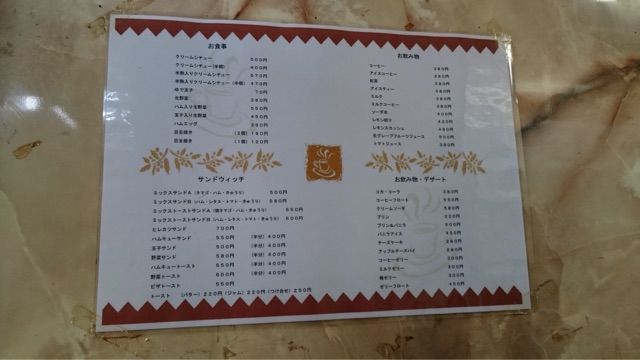 お食事
クリームシチュー 500円
クリームシチュー(半個) 400円
半熟入りクリームシチュー 570円
半熟入りクリームシチュー(半個) 470円
ゆで玉子 70円
生野菜 380円
ハム入り生野菜 550円
玉子入り生野菜 450円
ハムエッグ
目玉焼き (2個) 190円
目玉焼き (1個) 120円
サンドウィッチ
ミックスサンドA (タマゴ・ハム・きゅうり) 500円
ミックスサンドB (ハム・レタス・トマト・きゅうり) 580円
ミックストーストサンドA (焼タマゴ・ハム・きゅうり) 550円
ミックストーストサンドB (ハム・レタス・トマト・きゅうり) 600円
ヒレカツサンド 700円
ハムキューサンド 550円 (半分) 400円
玉子サンド 500円 (半分) 400円
野菜サンド 580円 (半分) 400円
ハムキュートースト 550円 (半分) 400円
野菜トースト 600円 (半分) 400円
ピザトースト 550円
トースト (バター) 220円 (ジャム) 220円 (つけ合せ) 250円
お飲み物
コーヒー 380円
アイスコーヒー 380円
紅茶 380円
アイスティー 380円
ミルク 380円
ミルクコーヒー 380円
ソーダ水 400円
レモン絞り 450円
レモンスカッシュ 480円
生グレープフルーツジュース 500円
トマトジュース 380円
お飲み物・デザート
コカ・コーラ 380円
コーヒーフロート 550円
クリームソーダ 580円
プリン
プリン&バニラ
バニラアイス
チーズケーキ
アップルチーズパイ
コーヒーゼリー
ミルクゼリー
梅ゼリー
ゼリーフロート 450円